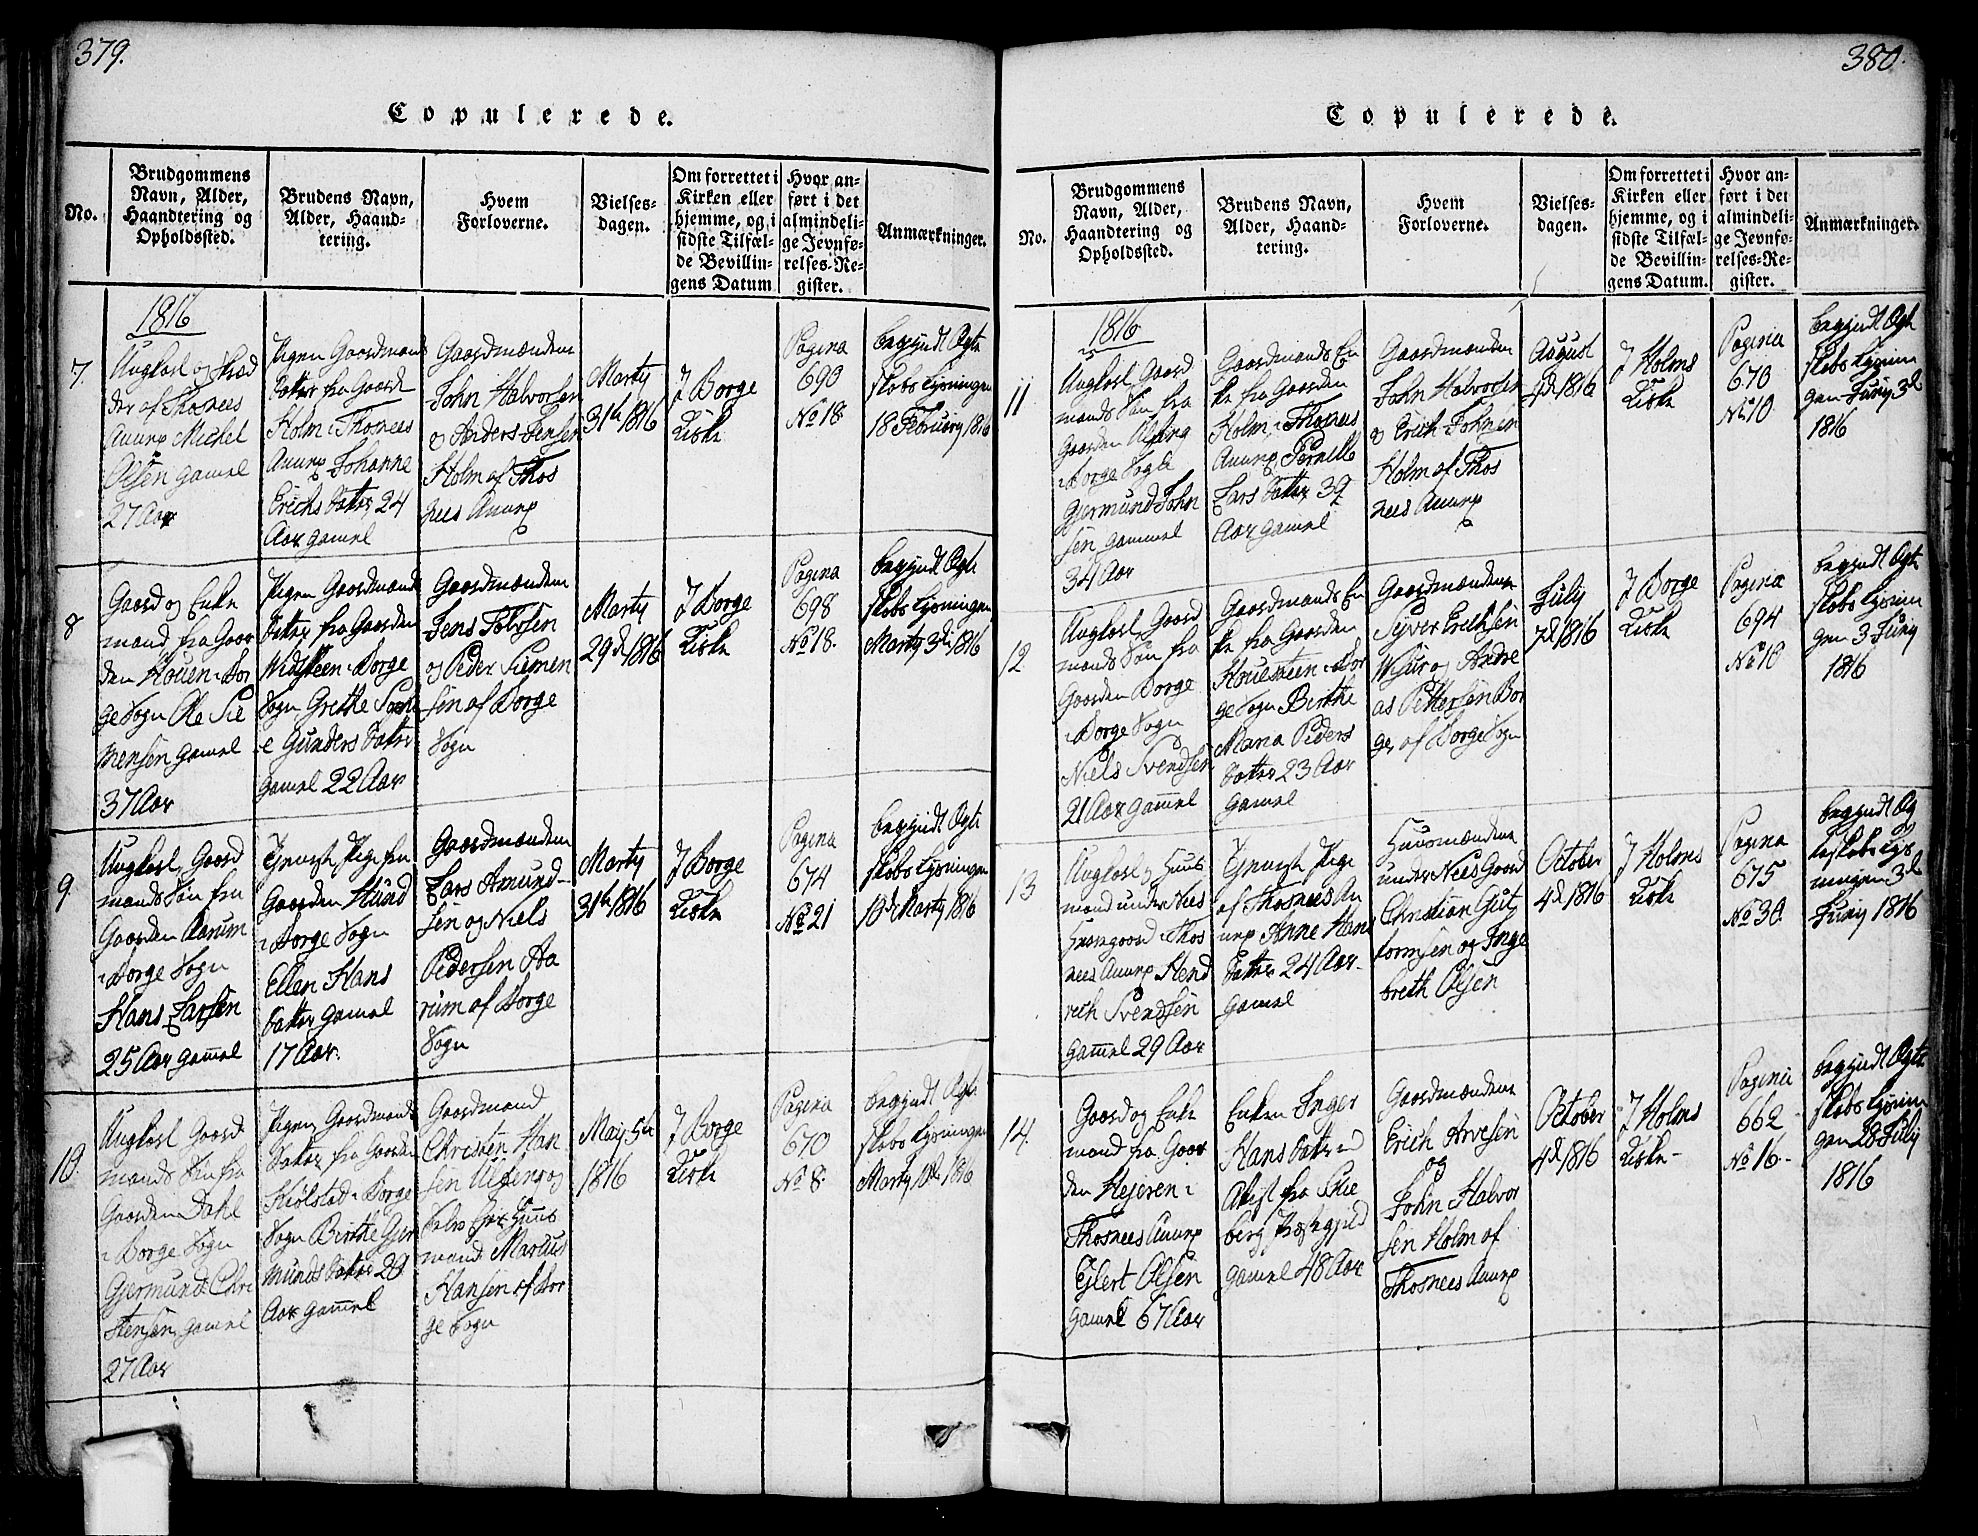 379.
Copulerede.
No.
Brudgommens
Navn, Alder,
Haandtering og
Opholdssted.
Brudens Navn,
Alder, Haand-
tering.
Hvem
Forloverne.
Vielses-
dagen.
Om forrettet i
Kirken eller
hjemme, og i
sidste Tilfæl-
de Bevillin-
gens Datum
Hvor an-
ført i det
almindeli-
ge Jevnfø-
relses-Re-
gister.
Anmærkninger.
7.
1816
Ungkarl og
der af Thosnees
Anurp Michel
Olsen gamel
27 Aar
Pigen Gaardmands
Datter fra Gaard
Holm i Thosnees
Anurp Johanne
Erichs Datter 24
Aar gamel
Gaardmændene
John Halvorsen
og Anders Jensen
Holm af Thos
nees Anurp
Marty
31th 1816
J Borge
Kirke
Pagina
690
No 18
begyndt Ægte
skabs Lysningen
18 February 1816
8
Gaard og Enke
mand fra Gaar
den Houen i Bor
ge Sogn Ole Sie
mensen gamel
37 Aar
Pigen Gaardmands
Datter fra Gaarden
Nidsteen i Borge
Sogn Grethe Sophi
e Gunders Datter
gamel 22 Aar
Gaardmændene
Jens Tolvsen
og Peder Siemen
sen af Borge
Sogn
Marty
29d 1816
J Borge
Kirke
Pagina
698
No 18.
begyndt Ægte
skabs Lysningen
Marty 3d 1816
9
Ungkarl, Gaard
mands Søn fra
Gaarden Aarum
i Borge Sogn
Hans Larsen
25 Aar gamel
Pige fra
Gaarden Hund
i Borge Sogn
Ellen Hans
Datter gamel
17 Aar.
Gaardmændene
Lars Amund-
sen og Niels
Pedersen Aa
rum af Borge
Sogn
Marty
31th 1816
J Borge
Kirke
Pagina
674
No 21
begyndt Ægte
skabs Lysningen
10d Marty 1816
10
Ungkarl Gaard
mands Søn fra
Gaarden Dahl
i Borge Sogn
Gjermund Chri
stensen gamel
27 Aar
Pigen Gaardmands
Datter fra Gaarden
Kiølstad i Borge
Sogn Birthe Gjer
munds Datter 20
Aar gamel
Gaardmand
Christen Han
sen og
Huus
mand Marcus
Hansen af Bor
ge Sogn
May 5th
1816
J Borge
Kirke
Pagina
670
No 8
begyndt Ægte
skabs Lysningen
Marty 10d 1816
380.
Copulerede.
No.
Brudgommens
Navn, Alder,
Haandtering og
Opholdssted.
Brudens Navn,
Alder, Haand-
tering.
Hvem
Forloverne.
Vielses-
dagen.
Om forrettet i
Kirken eller
hjemme, og i
sidste Tilfæl-
de Bevillin-
gens Datum.
Hvor an-
ført i det
almindeli-
ge Jevnfø-
relses-Re-
gister.
Anmærkninger.
11
1816
Ungkarl Gaard
mands Søn fra
Gaarden
i Borge Sogn
Gjermund John
sen gammel
34 Aar
Gaardmands En
ke fra Gaarden
Holm i Thosnees
Anurp Pernille
Lars Datter 39
Aar gamel
Gaardmændene
John Halvorsen
og Erich Johnsen
Holm af Thos
nees Anurp
August
4d 1816
J Holms
Kirke
Pagina
670
No 10
begyndt Ægte
skabs Lysnin
gen Juny 3d
1816
12
Ungkarl Gaard
mands Søn fra
Gaarden Borge
i Borge Sogn
Niels Svendsen
21 Aar gammel
Gaardmands En
ke fra Gaarden
Houesteen i Bor
ge Sogn Birthe
Maria Peders
Datter 23 Aar
gamel
Gaardmændene
Syver Erichsen
og Andre
as Pettersen Bor
ge, af Borge Sogn
July
7d 1816
J Borge
Kirke
Pagina
694
No 10
begyndt Ægte
skabs Lysnin
gen 3 Juny
1816
13
Ungkarl og Huus
mand under Nees
i Thos
nees Anurp Hend
rich Svendsen
gammel 29 Aar
Pige
af Thosnees An
urp Anne Hans
Datter 24 Aar
gamel
Huusmændene
under Nees Gaard
Christian Gut
tormsen og Inge
breth Olsen
October
4d 1816
J Holms
Kirke
Pagina
675
No 30.
begyndt Æg
teskabs Lys
ningen 3d
Juny 1816
14.
Gaard og Enke
mand fra Gaar
den Hejeren i
Thosnees Anurp
Ejlert Olsen
gamel 67 Aar
Enken Inger
Hans Datter
fra Skie
berg Præstegjeld
gamel 48 Aar
Gaardmændene
Erich Arvesen
og
John Halvor
sen Holm af
Thosnees Anurp
October
4d 1816
J Holms
Kirke
Pagina
662
No 16.
begyndt Ægte
skabs Lysnin
gen 28 July
1816